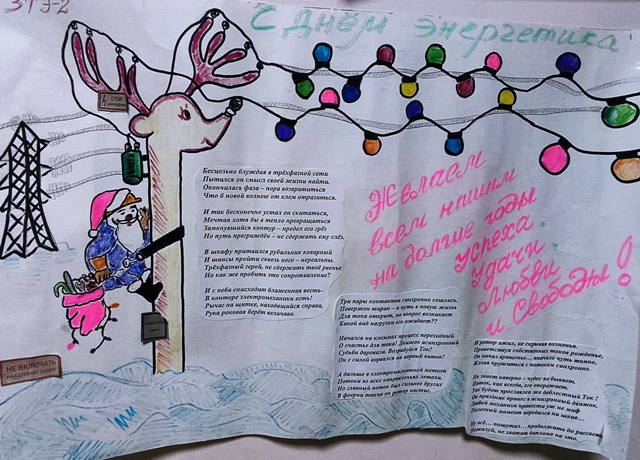 ЭТЭ-2
С Днём энергетика
СТОЙ
Желаем
всем нашим
на долгие годы
успеха
удачи
Любви
и Свободы!
Бесцельно блуждая в трёхфазной сети
Пытался он смысл своей жизни найти.
Окончилась фаза – пора возвратиться
Что б новой волною от клемм отразиться.
И так бесконечно устал он скитаться,
Мечтая хотя бы в тепло превращаться
Замкнувшийся контур – предел его грёз
Но путь преграждён – не сдержать ему слёз.
В шкафу притаился рубильник коварный
И шансы пройти сквозь него – нереальны.
Трёхфазный герой, не сдержать твоё рвенье
Но как же пробить это сопротивление?
И с неба снисходит блаженная весть
В конторе электромеханики есть!
Рычаг на щитке, находящийся справа,
Рука роковая берёт величаво.
Три пары контактов синхронно сошлись.
Повержен тиран – и путь в новую жизнь
Для тока открыт, но вопрос возникает
Какой вид нагрузки его ожидает?
Начался на клеммах процесс переходный.
О счастье для тока! Движок асинхронный
Судьба даровала. Возрадуйся Ток!
Он с силой ворвался на первый виток!
А дальше в электромагнитной метели
Потоки во всех направленьях летели.
Но главный поток был сильнее других
В феерии танца он ротор настиг.
И ротор ожил, не скрывая волненья,
Приветствуя собственных токов рожденье,
Он начал вращаться... вначале чуть тянко,
Желая кружиться с потоком синхронно.
Но знает наверно – чудес не бывает.
Поток, как всегда, его опережает.
Так будет прославлен же доблестный Ток!
Он праздник принес в асинхронный движок.
Любой механизм привести уж не миф
Полезный момент передался на шкив...
Ну всё... пошутил... продолжать до рассвета
Пожалуй, не хватит диплома на это.
НЕ ВКЛЮЧАТЬ
РАБОТАЮТ ЛЮДИ